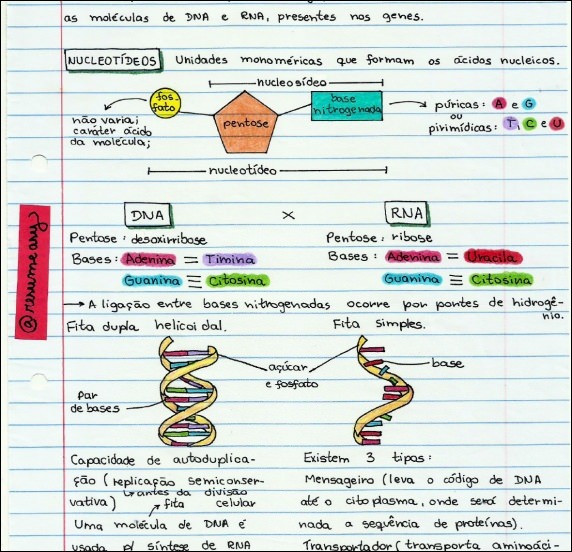 as moléculas de DNA e RNA, presentes nos genes.
NUCLEOTÍDEOS Unidades monoméricas que formam os ácidos nucleicos.
nucleosídeo
fos-
fato
pentose
base
nitrogenada
não varia;
caráter ácido
da molécula;
púricas: A e G
ou
pirimídicas: T, C e U
nucleotídeo
DNA × RNA
Pentose: desoxirribose
Bases: Adenina = Timina
Guanina ≡ Citosina
Pentose: ribose
Bases: Adenina = Uracila
Guanina ≡ Citosina
→ A ligação entre bases nitrogenadas ocorre por pontes de hidrogê-
nio.
@resumeary
Fita dupla helicoidal.
Fita simples.
açúcar
e fosfato
base
Par
de bases
Capacidade de autoduplica-
ção (replicação semiconser-
vativa) ↳ antes da divisão
celular
Uma molécula de DNA é
fita
usada p/ síntese de RNA
Existem 3 tipos:
Mensageiro (leva o código de DNA
até o citoplasma, onde será determi-
nada a sequência de proteínas).
Transportador (transporta aminoáci-